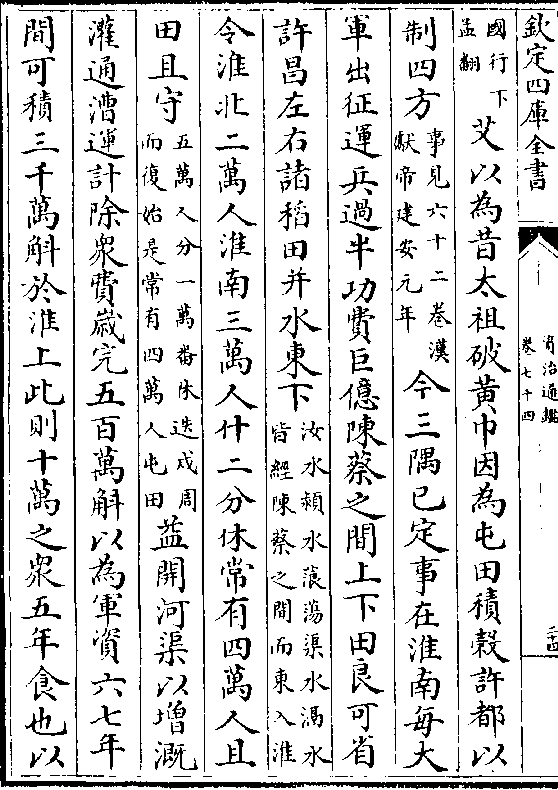 欽定四庫全書
資治通鑑
卷七十四
國行下孟翻艾以為昔太祖破黃巾因為屯田積穀許都以
制四方事見六十二卷漢獻帝建安元年今三隅已定事在淮南每大
軍出征運兵過半功費巨億陳蔡之間上下田良可省
許昌左右諸稻田并水東下汝水潁水蒗蕩渠水渦水皆經陳蔡之間而東入淮
令淮北二萬人淮南三萬人什二分休常有四萬人且
田且守五萬人分一萬番休迭戍周而復始是常有四萬人屯田益開河渠以增溉
灌通漕運計除衆費歲完五百萬斛以為軍資六七年
間可積三千萬斛於淮上此則十萬之衆五年食也以